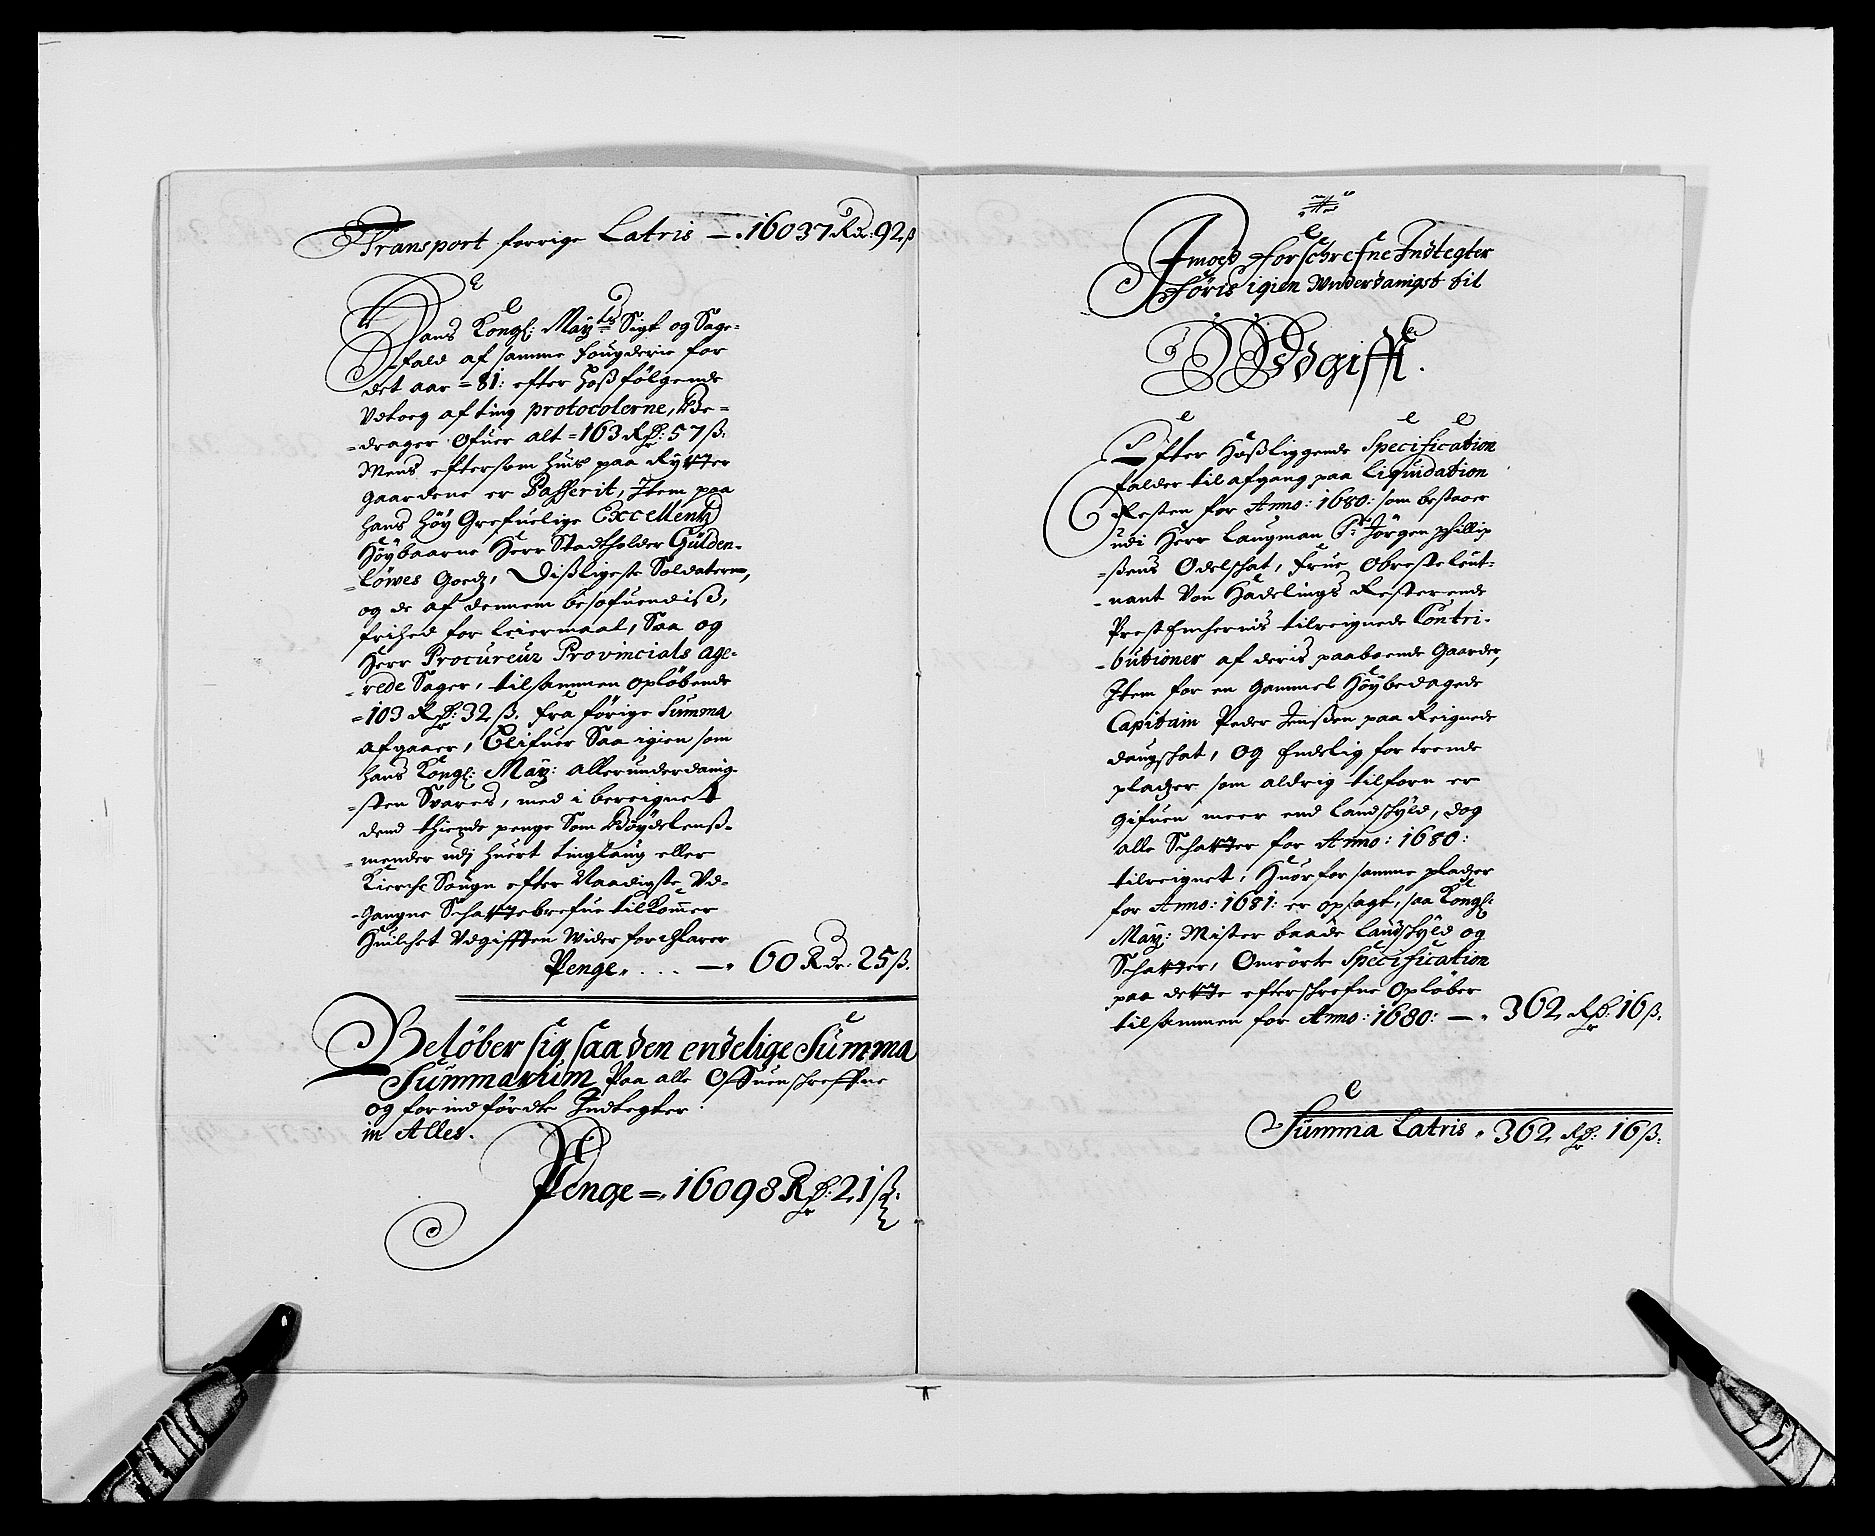 Transport forrige Latris — 16037 Rdr: 92 ß
Hans Kongl: Mayts Sigt og Sage-
fald af samme fougderie for
det aar = 81: efter hoßfölgende
Vdtoeg af ting protocolerne, Be-
-drager Ofuer alt = 163 Rdr: 57 ß:
Mens eftersom huis paa Rytter
gaardene er Passerit, Item paa
hans höy Grefuelige Excellentz
Höybaarne Herr Stadtholder Gülden-
-löwes Goedz, Dißligeste Soldaterne,
og de af dennem besofuendiß,
frihed for leiermaal, Saa og
Herr Procureur Provincials age-
-rede Sager, tilsammen opløbende
=103 Rdr: 32 ß. fra förige Summa
afgaaer, Blifuer Saa igien som
hans Kongl: May: allerunderdanig-
-sten Svares, med i bereignet
dend thiende penge Som Böydelenß-
-mender udj huert tinglaug eller
Kierche Sougn efter Naadigste Vd-
-gangne Schattebrefue tilkommer
Huilchet Vdgifften Wider forchlarer
Penge. . . . — 60 Rdr: 25 ß.
Belöber sig saa den endelige Summa
Summarum Paa alle Offuenschreffne
og forindfördte Indtegter.
in Alles.
Penge =. 16098 Rdr: 21 ß:
Imoed forschrefne Indtegter
föris igien Vnderdanigst til
Vdgifft.
Efter Hoßliggende Specification
falder til afgang paa Liquidation
Resten for Anno: 1680: som bestaaer
udi Herr Laugman Sr: Jörgen Phillip
-ßens Odelschat, Frue Obersteleut-
-nant Von Hadelings Resterende
Prest Enchernis tilreignede Contri-
-butioner af deris paaboende Gaarder,
Item for en gammel Höybedagede
Capitain Peder Jenßen paa Reignede
daugschat, og Endelig for trende
pladzer som aldrig tilforn er
gifuen meer end landschyld, dog
alle Schatter for Anno: 1680:
tilreignet, Huorfor samme pladzer
for Anno: 1681: er opsagt, saa Kongl:
May: Mister baade landschyld og
Schatter, Omrörte Specification
paa dette efterschrefne Opløber
tilsammen for Anno: 1680: —. 362 Rdr: 16 ß.
Summa Latris . 362 Rdr: 16 ß.